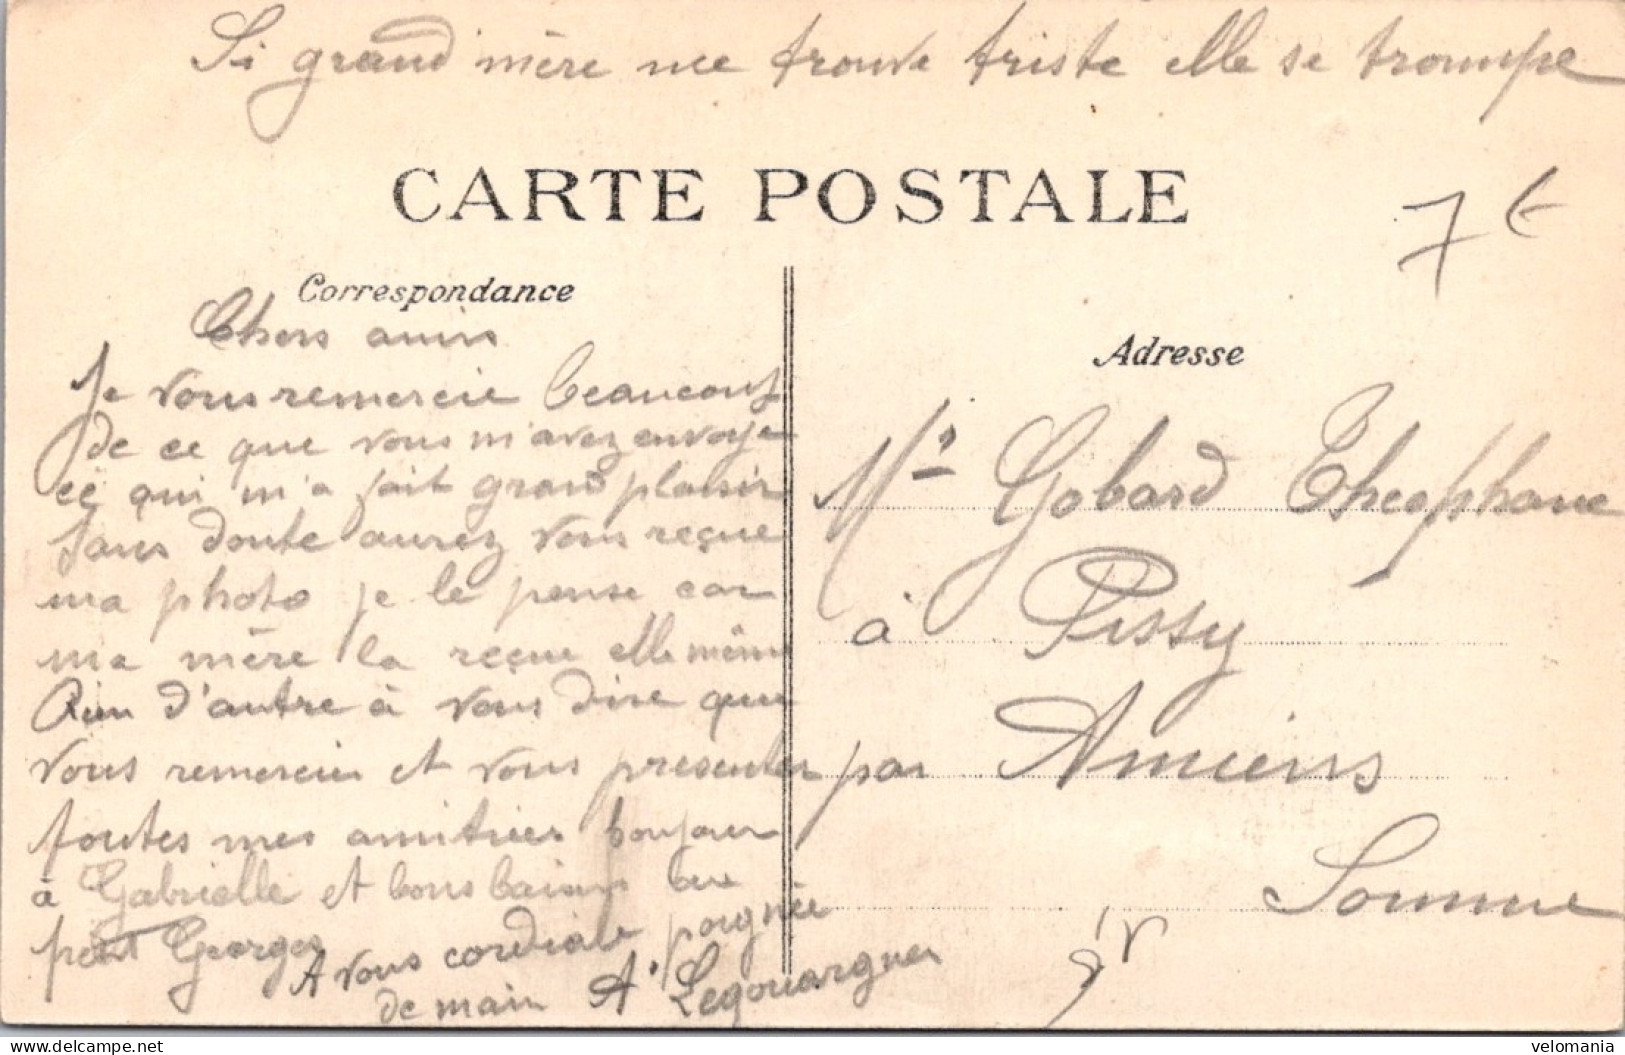 Si grand mère me trouve triste elle se trompe
CARTE POSTALE
7 €
Correspondance
Chers amis
Je vous remercie beaucoup
de ce que vous m'avez envoyé
ce qui m'a fait grand plaisir
sans doute aurez vous reçue
ma photo je le pense car
ma mère la reçue elle même
Rien d'autre à vous dire que
vous remercier et vous presenter
toutes mes amitiées bonjour
à Gabrielle et bons baisers au
petit Georges
A vous cordiale poignée
de main A. Legouarguer
Adresse
Mr Gobard Theophane
à Pissy
par Amiens
Somme
velomania